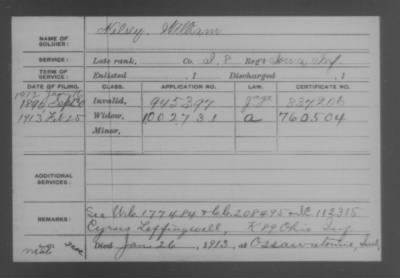 NAME OF SOLDIER: Kelsey, William
SERVICE: Late rank, Co. I, 8 Reg't Iowa Inf.
TERM OF SERVICE: Enlisted , 1 Discharged , 1
DATE OF FILING. CLASS. APPLICATION NO. LAW. CERTIFICATE NO.
1912
1890 Sep Invalid, 945397
1913 Feb 25 Widow, 1002731 a 760504
Minor,
ADDITIONAL SERVICES:
REMARKS: See W.C. 177484 & C.C. 208495 112315
Cyrus Leffingwell, K 89 Ohio Inf.
Died Jan 26, 1913, at Ossawatomie,